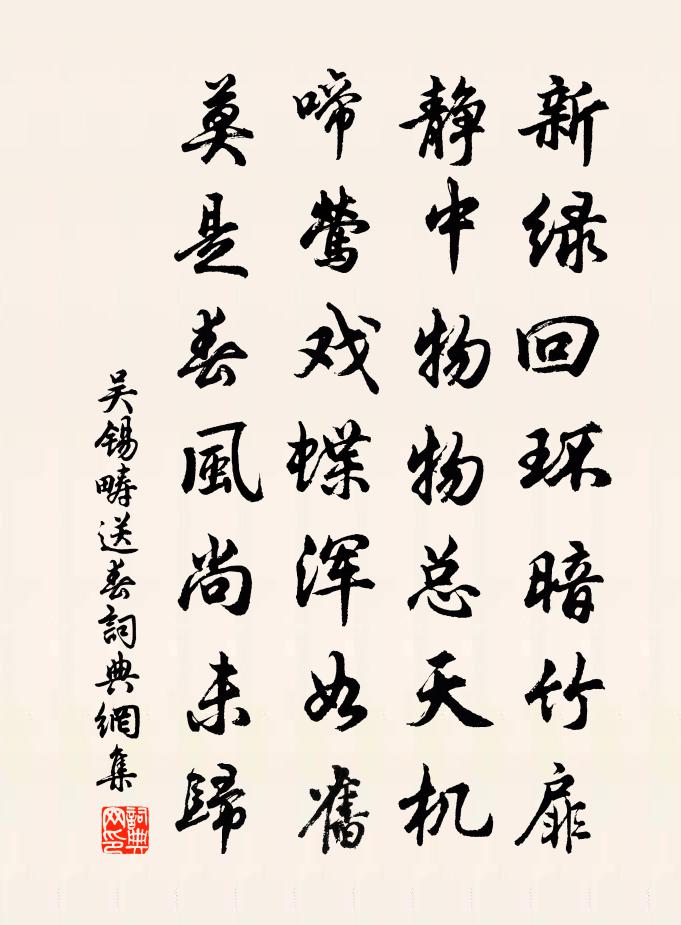 新绿回环暗竹扉
静中物物总天机
啼莺戏蝶浑如舊
莫是春風尚未歸
吴锡畴送春詞典網集
詞典
网印